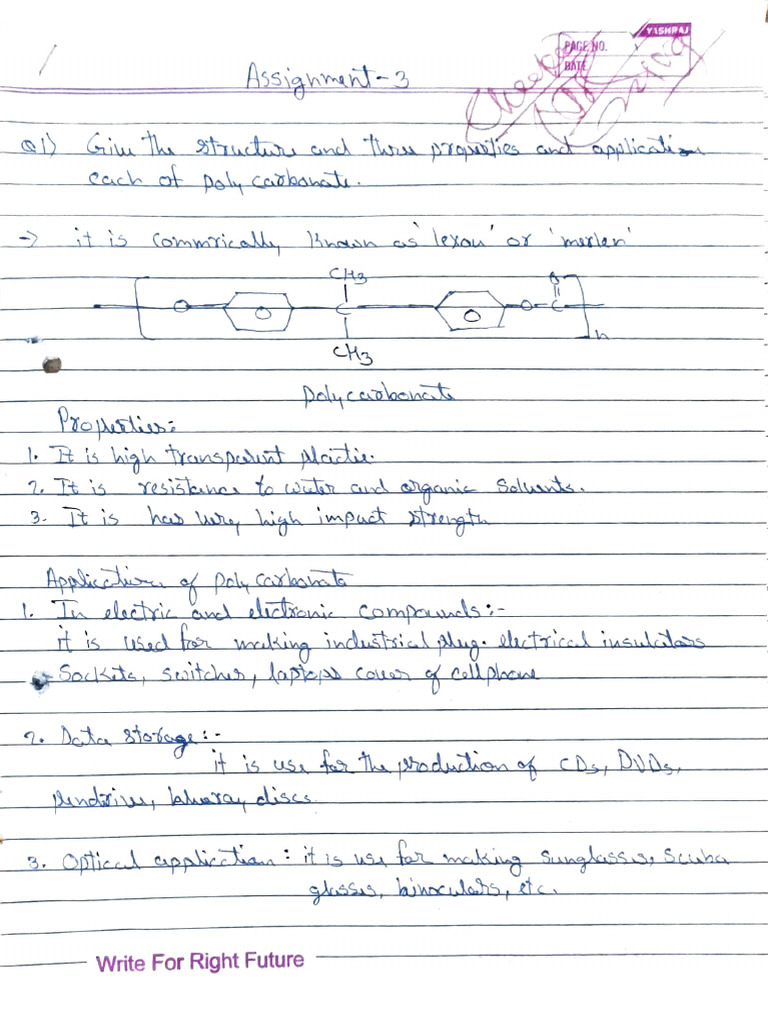 YASHRAJ
PAGE NO.
DATE
Assignment-3
Q1) Give the structure and three properties and application
each of poly carbonate.
-> it is commrically known as 'lexon' or 'merlen'
CH3
O C O C O
n
CH3
Polycarbonate
Properties:
1. It is high transparent plactic.
2. It is resistance to water and organic solvents.
3. It is has very high impact strength
Application of poly carbonate
1. In electric and electronic compounds:-
it is used for making industrial plug. electrical insulators
Sockets, switches, laptops cover of cellphone
2. Data storage:-
it is use for the production of CDs, DVDs,
pendrives, bluray discs.
3. Optical application: it is use for making sunglasses, scuba
glasses, binoculars, etc.
Write For Right Future